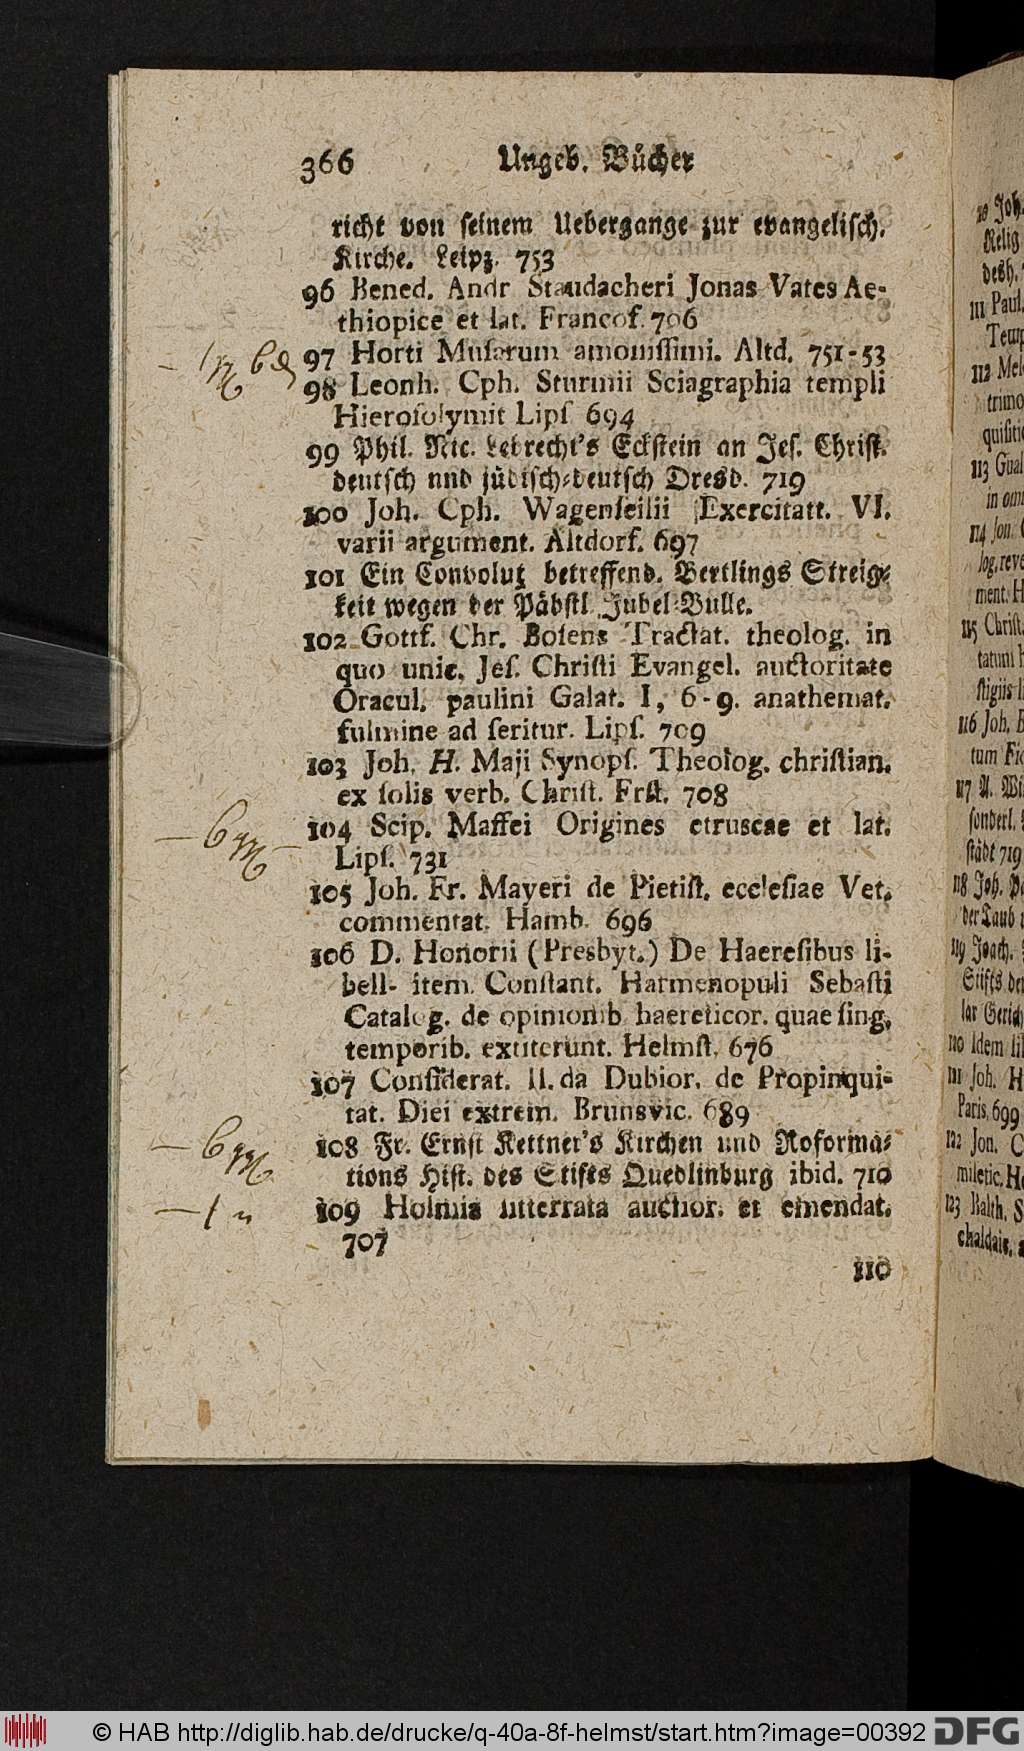 366 Ungeb. Bücher
richt von seinem Uebergange zur evangelisch.
Kirche. Leipz. 753
96 Bened. Andr Staudacheri Jonas Vates Ae-
thiopice et lat. Francof. 706
97 Horti Muſarum amoniſſimi. Altd. 751-53
98 Leonh. Cph. Sturmii Sciagraphia templi
Hieroſolymit Lipſ 694
99 Phil. Nic. Lebrecht's Eckstein an Jes. Christ.
deutsch und jüdisch-deutsch Dresd. 719
100 Joh. Cph. Wagenſeilii Exercitatt. VI.
varii argument. Altdorf. 697
101 Ein Convolut betreffend. Bertlings Streig-
keit wegen der Päbstl. Jubel-Bulle.
102 Gottf. Chr. Boſens Tractat. theolog. in
quo unic. Jeſ. Chriſti Evangel. auctoritate
Oracul. paulini Galat. I, 6-9. anathemat.
fulmine ad ſeritur. Lipſ. 709
103 Joh. H. Maji Synopſ. Theolog. chriſtian.
ex ſolis verb. Chriſt. Frſt. 708
104 Scip. Maffei Origines etruscae et lat.
Lipſ. 731
105 Joh. Fr. Mayeri de Pietiſt. eccleſiae Vet.
commentat. Hamb. 696
106 D. Honorii (Presbyt.) De Haereſibus li-
bell- item. Conſtant. Harmenopuli Sebaſti
Catalog. de opinionib haereticor. quae ſing.
temporib. extiterunt. Helmſt. 676
107 Conſiderat. II. da Dubior. de Propinqui-
tat. Diei extrem. Brunsvic. 689
108 Fr. Ernst Kettner's Kirchen und Roforma-
tions Hist. des Stifts Quedlinburg ibid. 710
109 Holmis litterata auctior. et emendat.
707
110
© HAB http://diglib.hab.de/drucke/q-40a-8f-helmst/start.htm?image=00392
DFG